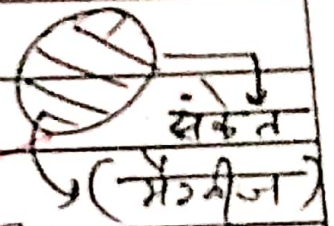 संकेत
(मैंगनीज)